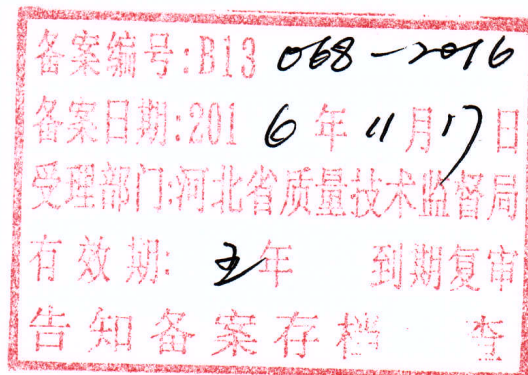 备案编号:B13 068-2016
备案日期:2016年11月17日
受理部门:河北省质量技术监督局
有效期: 五年 到期复审
告知备案存档 查